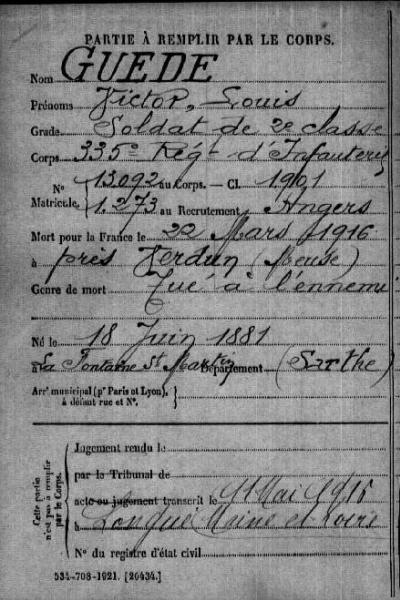 PARTIE À REMPLIR PAR LE CORPS.
Nom GUEDE
Prénoms Victor, Louis
Grade Soldat de 2e classe
Corps 335e Rég t d'Infanterie
N° 13092 au Corps. — Cl. 1901
Matricule. 1.273 au Recrutement Angers
Mort pour la France le 22 Mars 1916
à près Verdun (Meuse)
Genre de mort Tué à l'ennemi
Né le 18 Juin 1881
à La Fontaine St Martin Département (Sarthe)
Arr t municipal (p r Paris et Lyon),
à défaut rue et N°.
Cette partie n'est pas à remplir par le Corps.
Jugement rendu le
par le Tribunal de
acte ou jugement transcrit le 11 Mai 1916
à Longué Maine et Loire
N° du registre d'état civil
534-708-1921. [26434.]